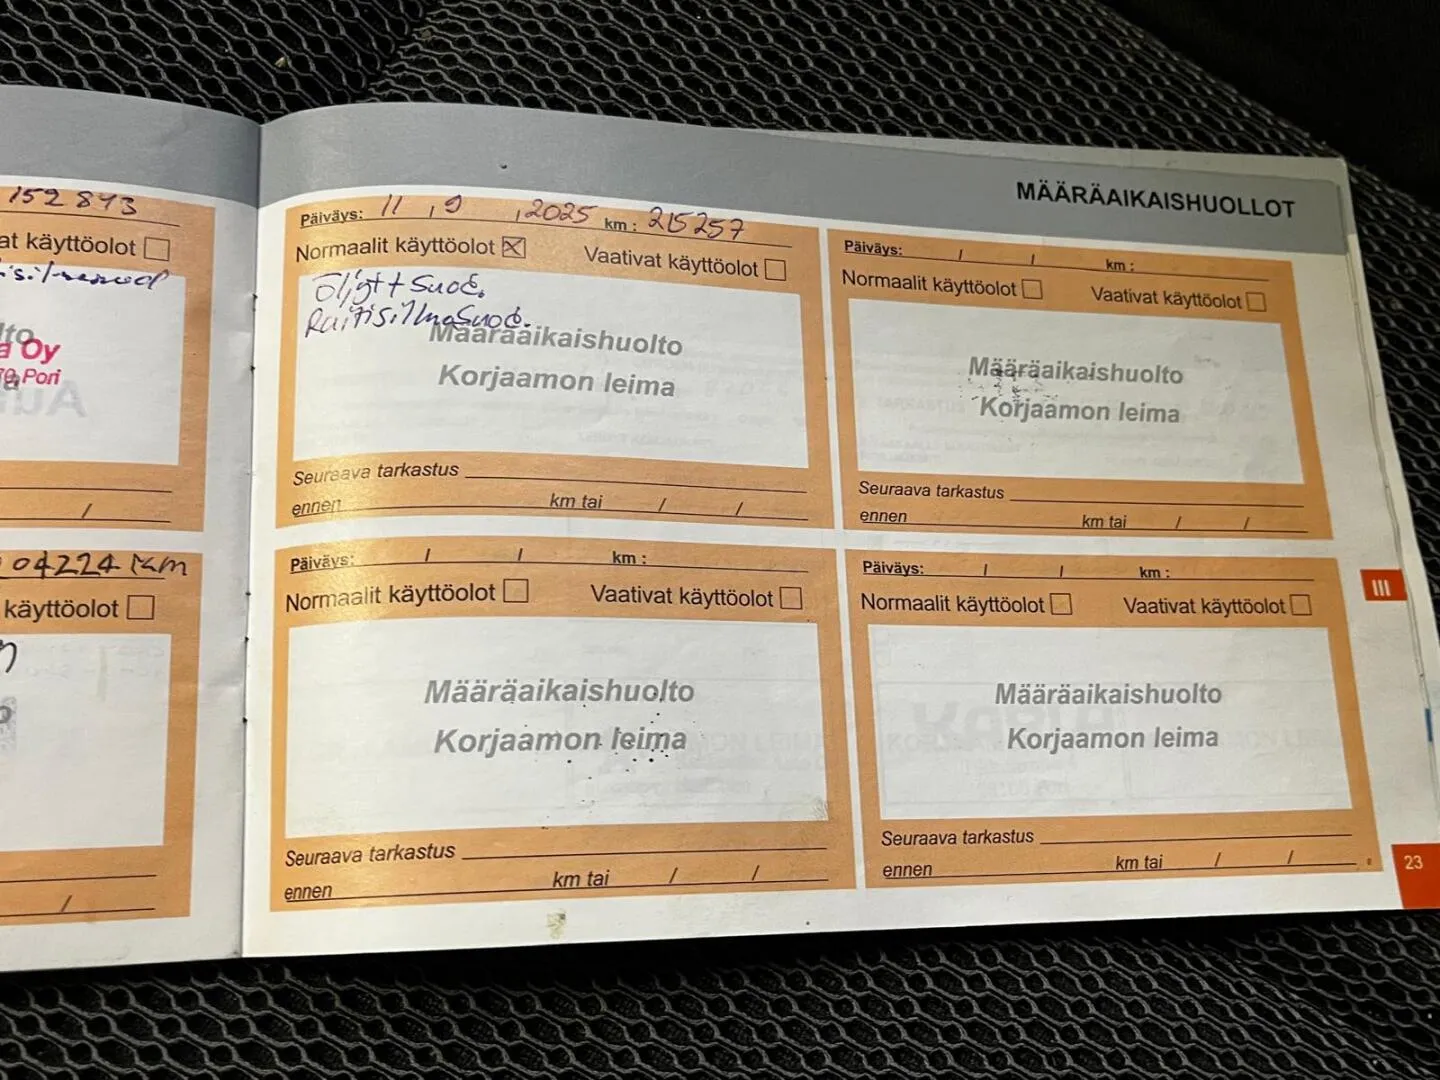 152 843
at käyttöolot
lto
a Oy
Pori
/
04224 km
käyttöolot
/
MÄÄRÄAIKAISHUOLLOT
Päiväys: 11 , 9 , 2025 km : 215257
Normaalit käyttöolot ☒ Vaativat käyttöolot
Öljyt + Suod.
Raitisilmasuod.
Määräaikaishuolto
Korjaamon leima
Seuraava tarkastus
ennen km tai / /
Päiväys: / / km :
Normaalit käyttöolot Vaativat käyttöolot
Määräaikaishuolto
Korjaamon leima
Seuraava tarkastus
ennen km tai / /
Päiväys: / / km :
Normaalit käyttöolot Vaativat käyttöolot
Määräaikaishuolto
Korjaamon leima
Seuraava tarkastus
ennen km tai / /
Päiväys: / / km :
Normaalit käyttöolot Vaativat käyttöolot
Määräaikaishuolto
Korjaamon leima
Seuraava tarkastus
ennen km tai / /
III
23